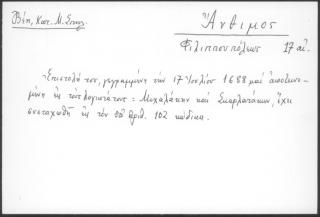 Βέη, Κατ. Μ. Σπηλ.
Ἄνθιμος
Φιλιππουπόλεως 17 αἰ.
Ἐπιστολή του, γεγραμμένη τὴν 17 Ἰουλίου 1688 καὶ ἀπευθυνο-
μένη εἰς τοὺς λογιωτάτους: Μιχαλάκην καὶ Σκαρλατάκην, ἔχει
συσταχωθῆ εἰς τὸν ὑπ' ἀριθ. 102 κώδικα.